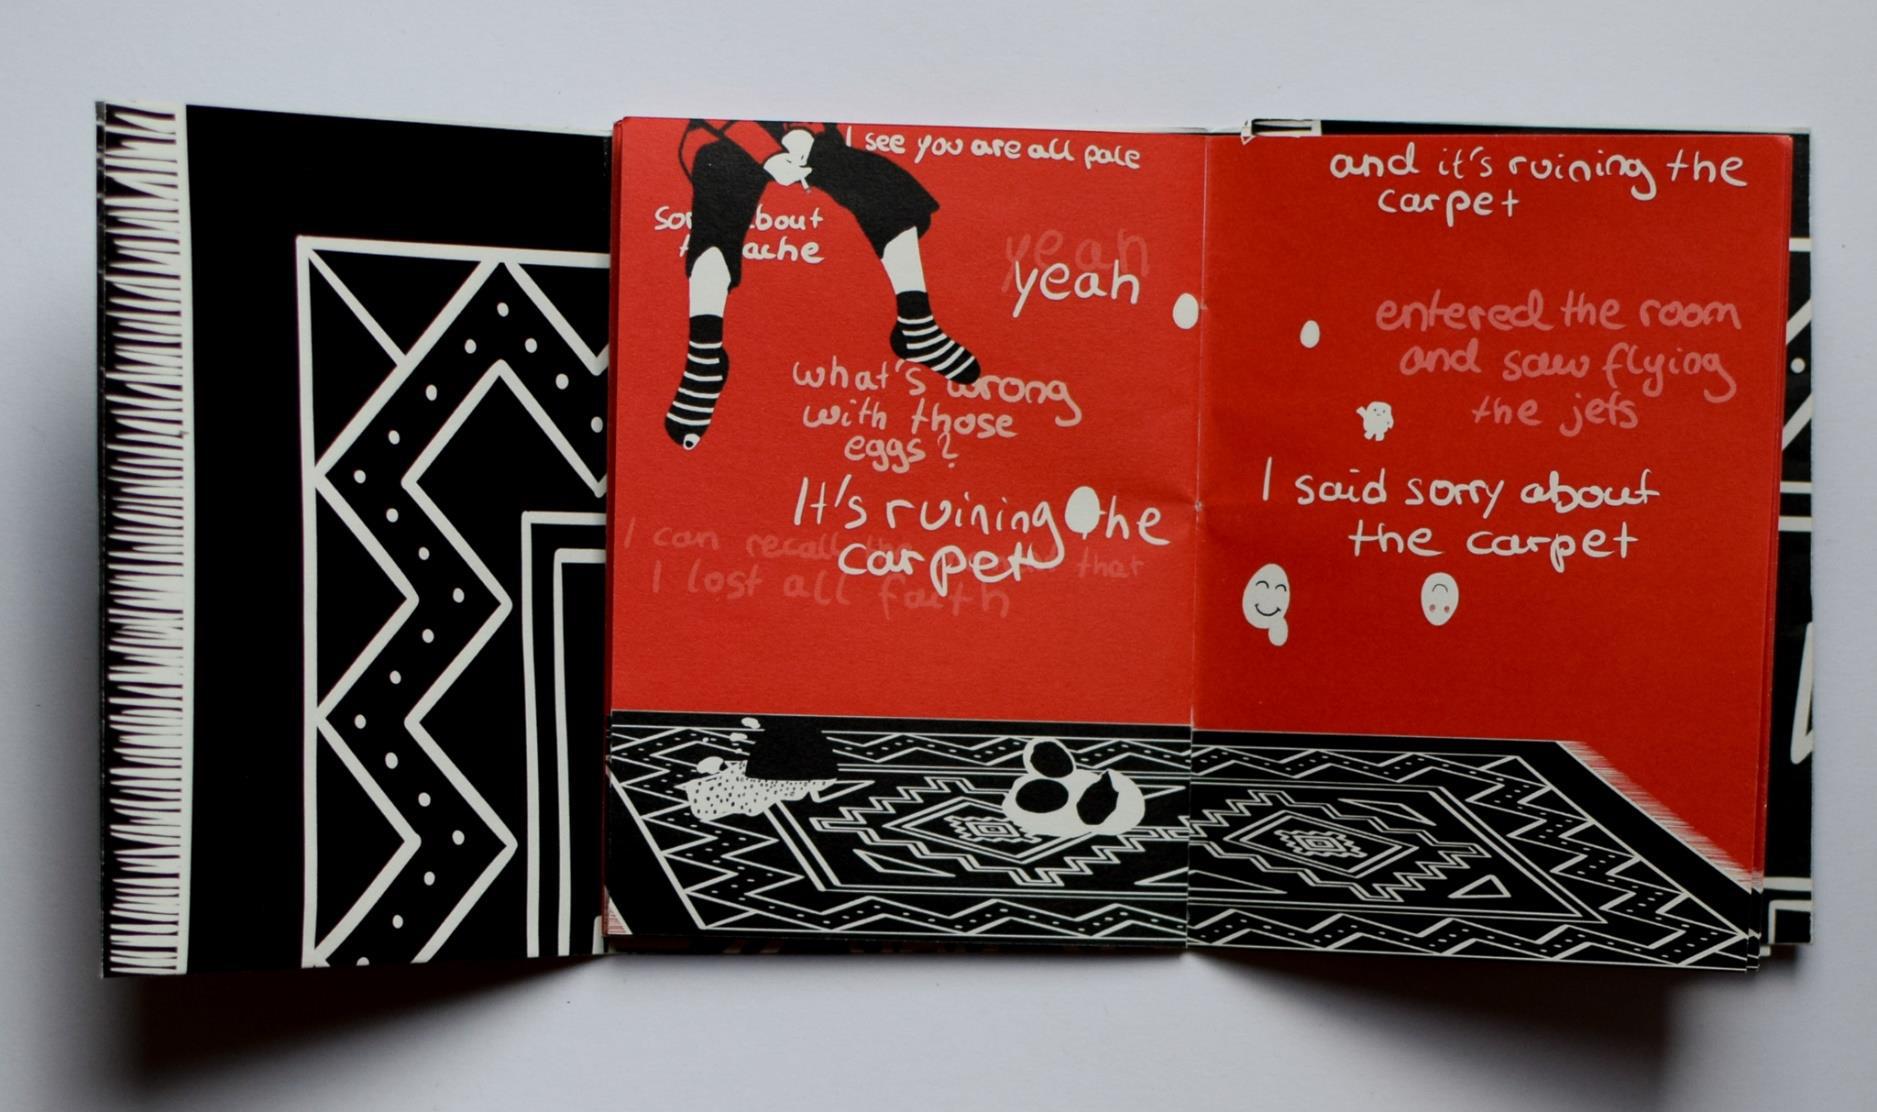 I see you are all pale
about
ache
yeah
yeah
what's wrong
with those
eggs?
It's ruining the
carpet
I can recall that
I lost all faith
and it's ruining the
carpet
entered the room
and saw flying
the jets
I said sorry about
the carpet